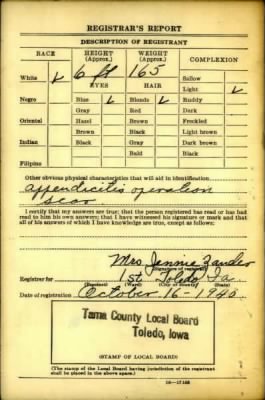 REGISTRAR'S REPORT
DESCRIPTION OF REGISTRANT
RACE HEIGHT (Approx.) WEIGHT (Approx.) COMPLEXION
6 ft 165
White ✓ EYES HAIR Sallow
Light ✓
Negro Blue ✓ Blonde ✓ Ruddy
Gray Red Dark
Oriental Hazel Brown Freckled
Brown Black Light brown
Indian Black Gray Dark brown
Bald Black
Filipino
Other obvious physical characteristics that will aid in identification
appendicitis operation
scar
I certify that my answers are true; that the person registered has read or has had
read to him his own answers; that I have witnessed his signature or mark and that
all of his answers of which I have knowledge are true, except as follows:
Mrs Jennie Zander
(Signature of registrar)
Registrar for 1st Toledo Ia.
(Precinct) (Ward) (City or county) (State)
Date of registration October 16 - 1940
Tama County Local Board
Toledo, Iowa
(STAMP OF LOCAL BOARD)
(The stamp of the Local Board having jurisdiction of the registrant
shall be placed in the above space.)